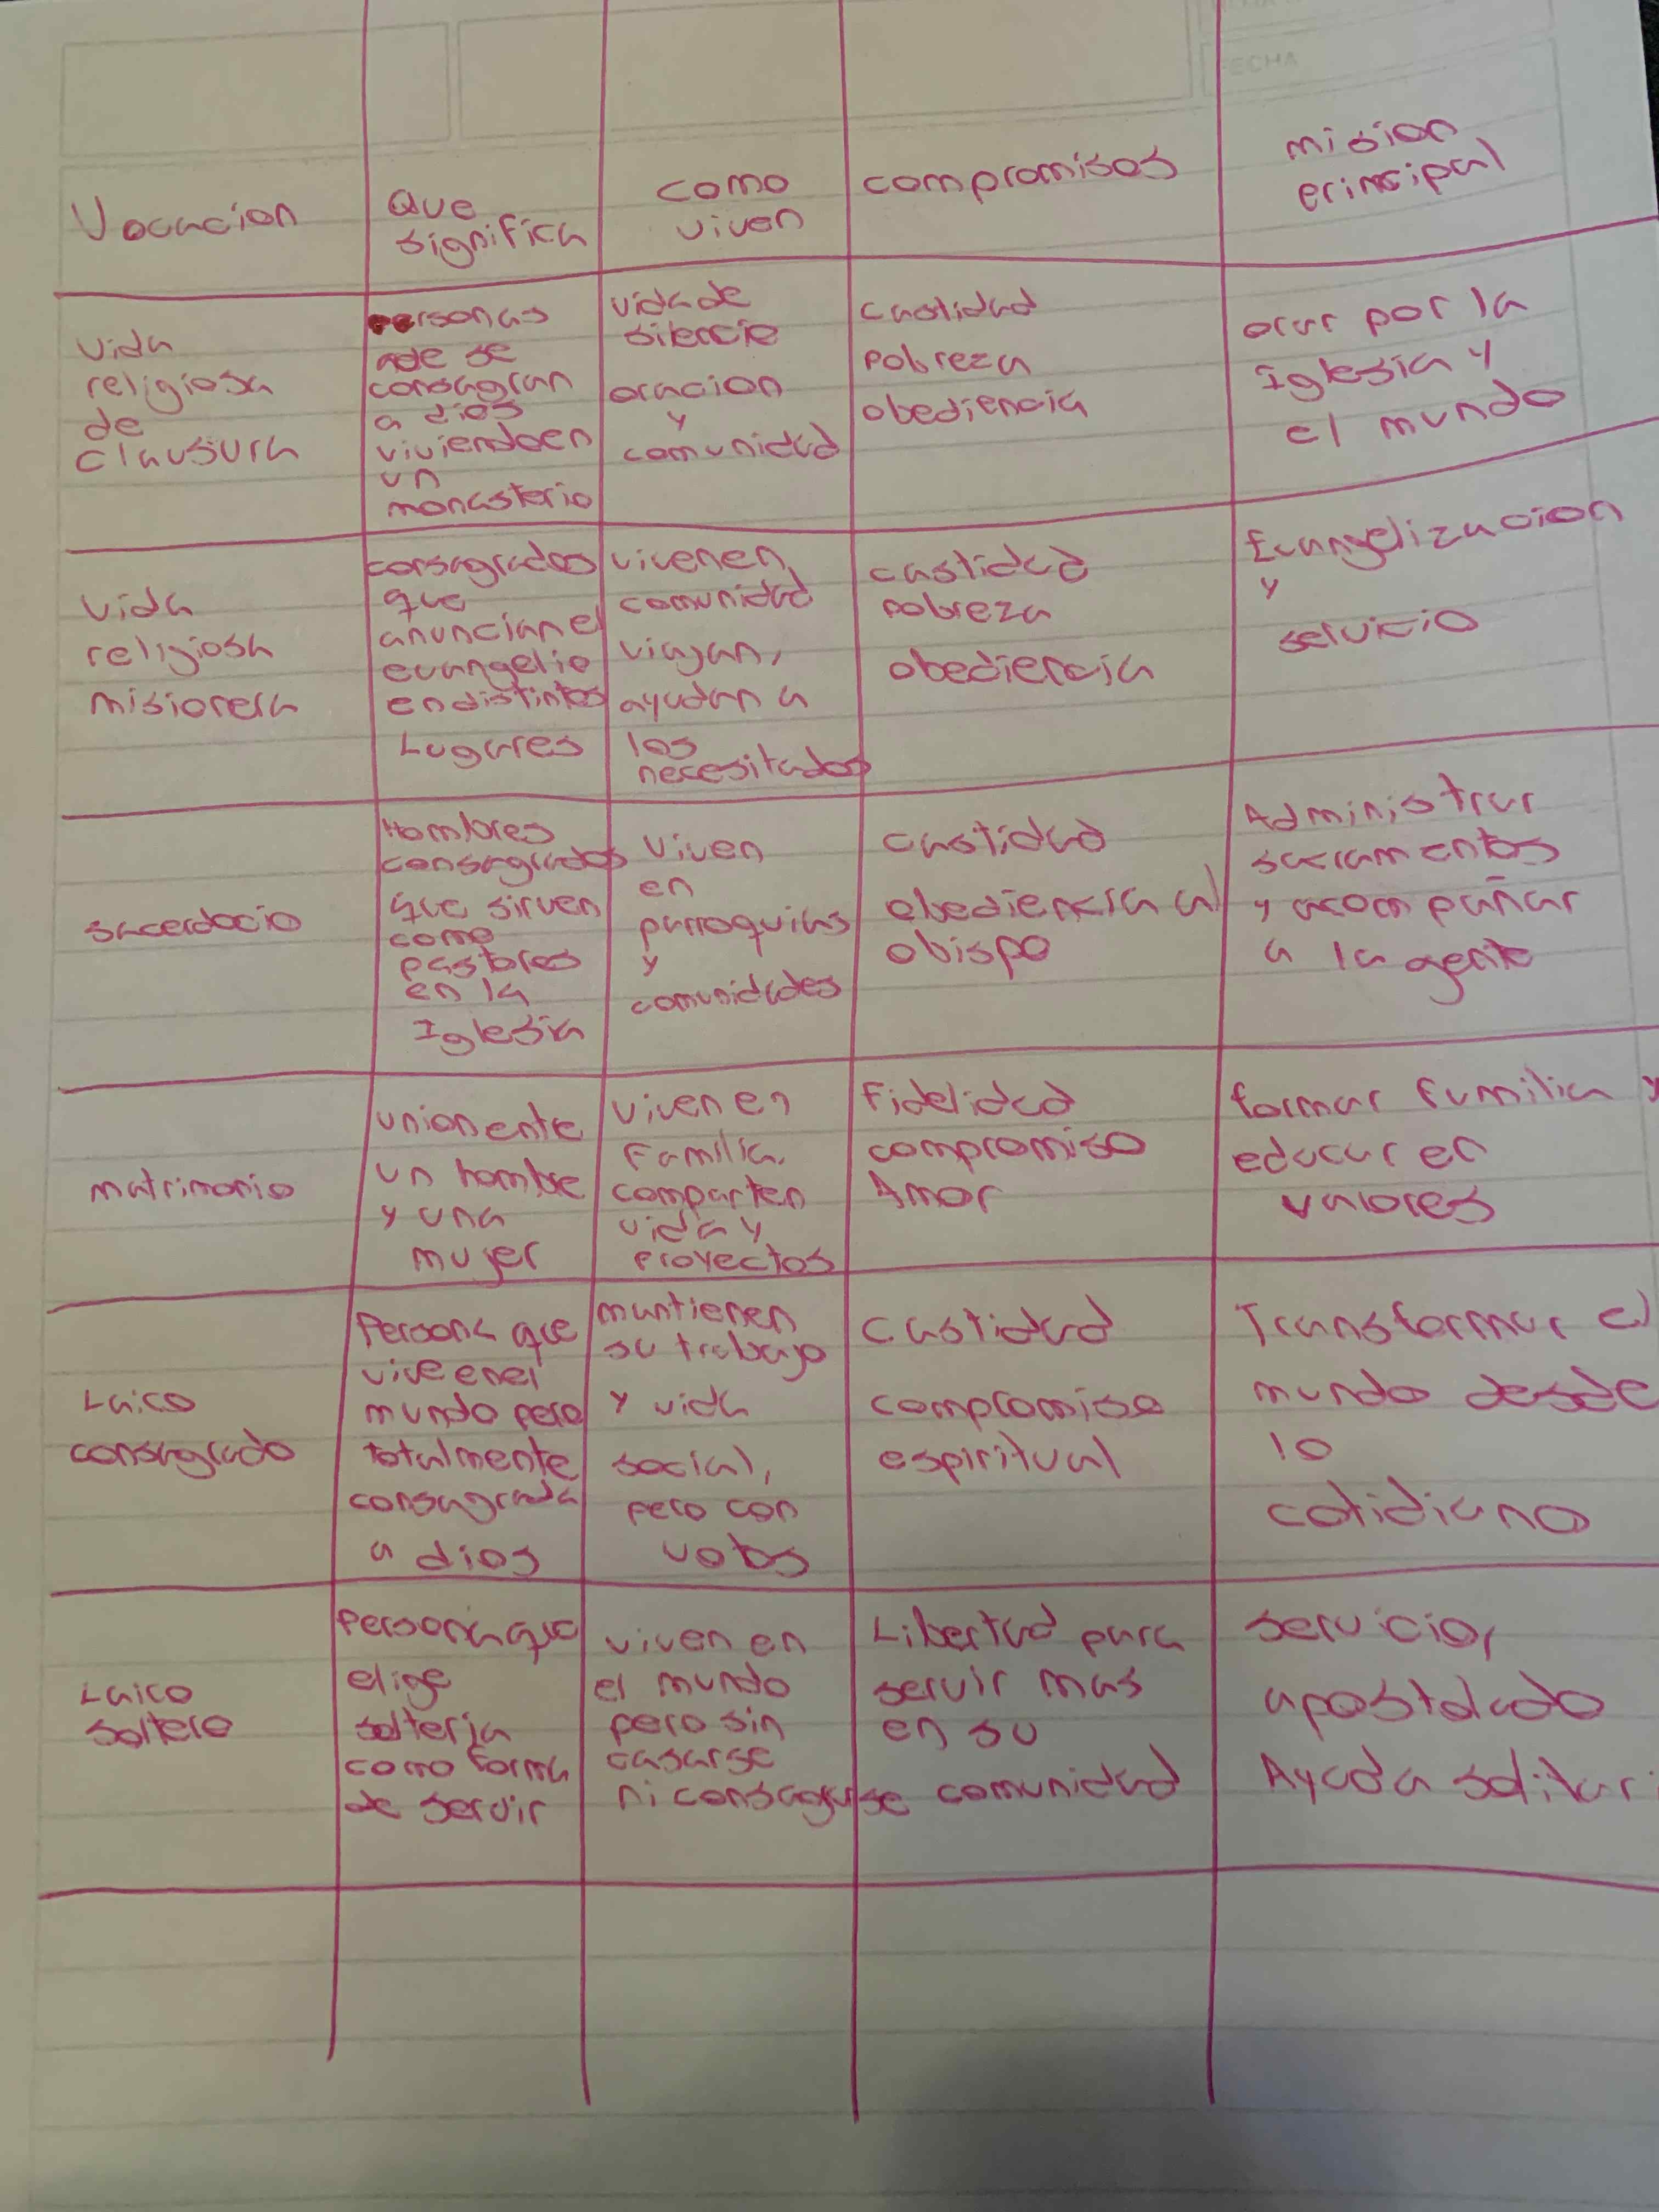 FECHA
Vocacion
Que
significa
como
viven
compromisos
mision
principal
vida
religiosa
de
clausura
personas
que se
consagran
a dios
viviendo en
un
monasterio
vida de
silencio
oracion
y
comunidad
castidad
pobreza
obediencia
orar por la
Iglesia y
el mundo
vida
religiosa
misionera
consagrados
que
anuncian el
evangelio
en distintos
Lugares
viven en
comunidad
viajan,
ayudan a
los
necesitados
castidad
pobreza
obediencia
Evangelizacion
y
servicio
sacerdocio
Hombres
consagrados
que sirven
como
pastores
en la
Iglesia
viven
en
parroquias
y
comunidades
castidad
obediencia al
obispo
Administrar
sacramentos
y acompañar
a la gente
matrimonio
union ente
un hombre
y una
mujer
viven en
Familia,
comparten
vida y
proyectos
Fidelidad
compromiso
Amor
formar familia y
educar en
valores
Laico
consagrado
Persona que
vive en el
mundo pero
totalmente
consagrada
a dios
mantienen
su trabajo
y vida
social,
pero con
votos
castidad
compromiso
espiritual
Transformar el
mundo desde
lo
cotidiano
Laico
soltero
Persona que
elige
solteria
como forma
de servir
viven en
el mundo
pero sin
casarse
ni consagrarse
Libertad para
servir mas
en su
comunidad
servicio,
apostolado
Ayuda